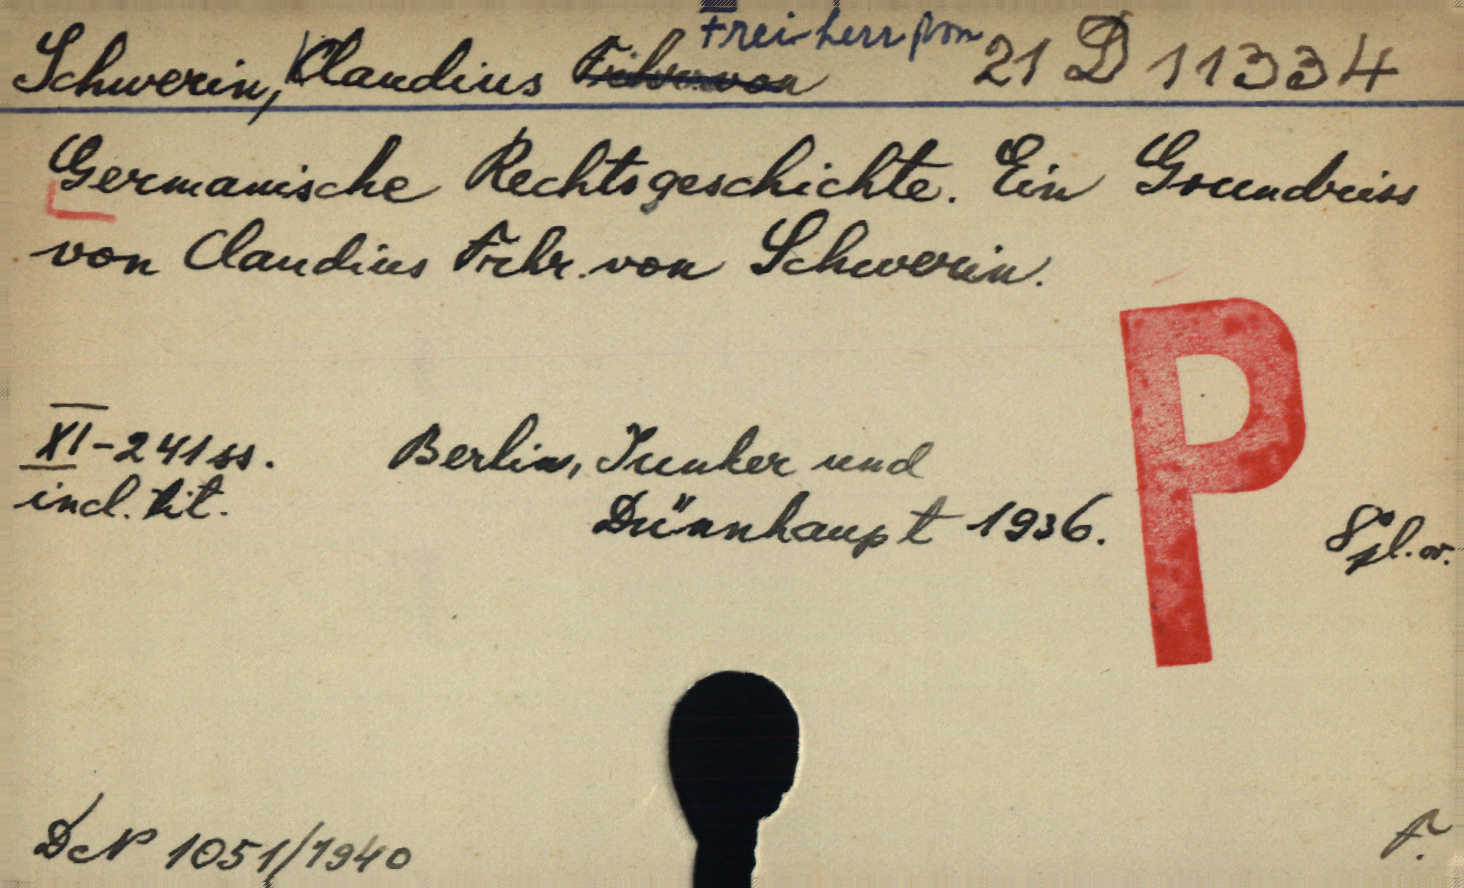 Schwerin, Claudius Frhr. von Freiherr von 21 D 11334
Germanische Rechtsgeschichte. Ein Grundriss
von Claudius Frhr. von Schwerin.
P
XI-241 ss. Berlin, Junker und
incl. tit. Dünnhaupt 1936. 8º
DcN 1051/1940 F.